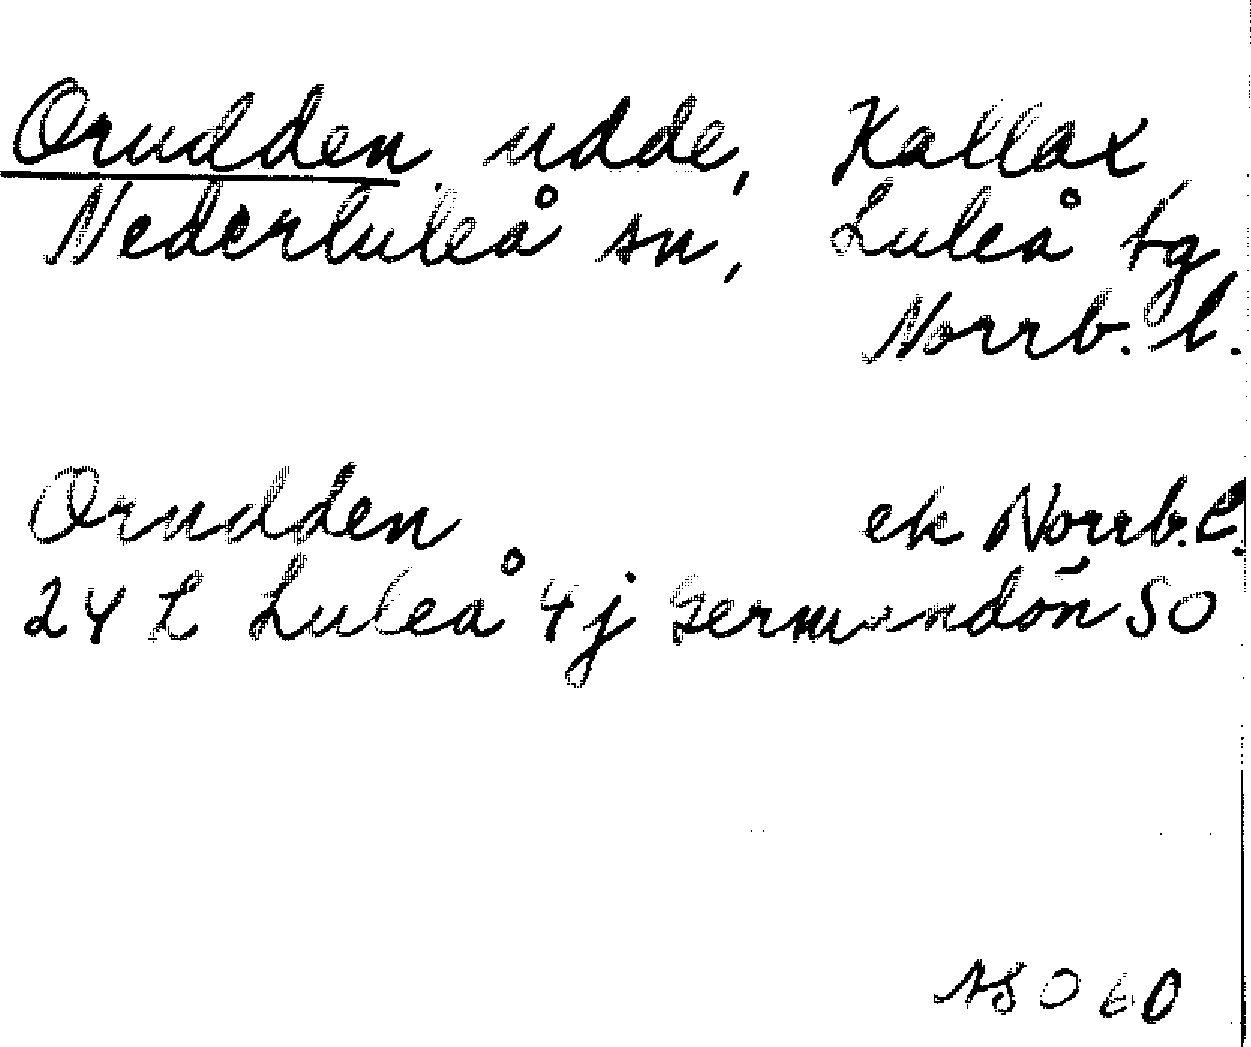 Orudden, udde, Kallax,
Nederluleå sn, Luleå tg,
Norrb. l.
Orudden ek Norrb.l.
24 L Luleå 4j Germandön SO